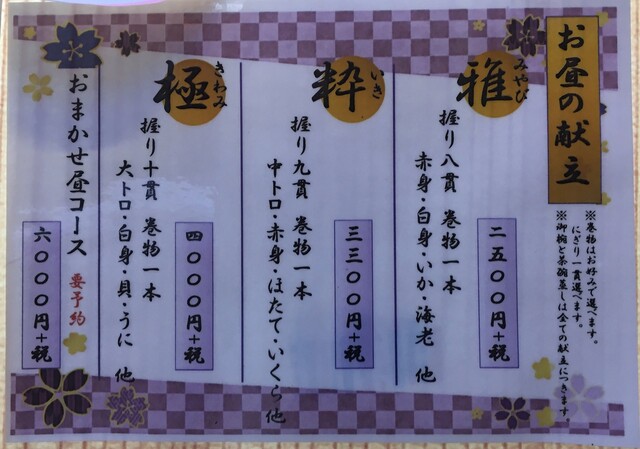 お昼の献立
※巻物はお好みで選べます。
にぎり一貫選べます。
※御椀と茶碗蒸しは全ての献立につきます。
雅
みやび
握り八貫 巻物一本
赤身・白身・いか・海老 他
二五〇〇円+税
粋
いき
握り九貫 巻物一本
中トロ・赤身・ほたて・いくら他
三三〇〇円+税
極
きわみ
握り十貫 巻物一本
大トロ・白身・貝・うに 他
四〇〇〇円+税
おまかせ昼コース 要予約
六〇〇〇円+税